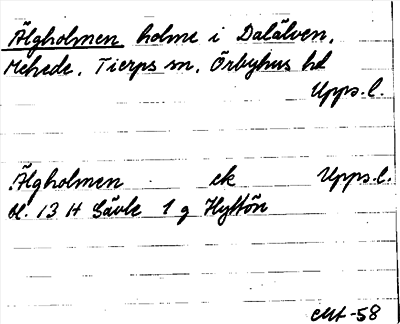 Älgholmen holme i Dalälven,
Mehede, Tierps sn, Örbyhus hd
Upps.l.
Älgholmen ek Upps.l.
bl. 13 H Gävle 1 g Hyttön
-58